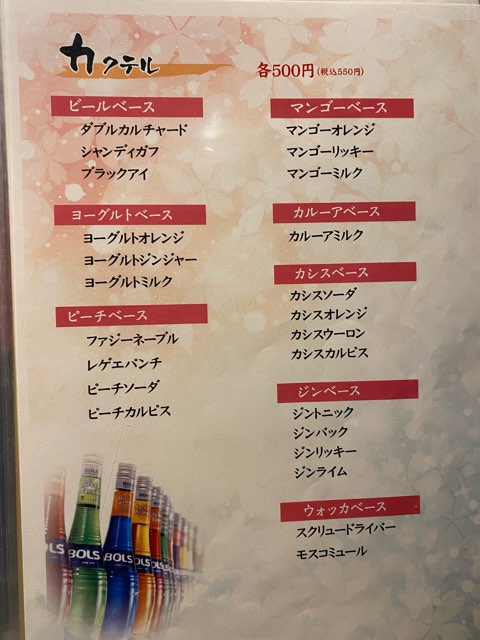 カクテル
各500円(税込550円)
ビールベース
ダブルカルチャード
シャンディガフ
ブラックアイ
ヨーグルトベース
ヨーグルトオレンジ
ヨーグルトジンジャー
ヨーグルトミルク
ピーチベース
ファジーネーブル
レゲエパンチ
ピーチソーダ
ピーチカルピス
マンゴーベース
マンゴーオレンジ
マンゴーリッキー
マンゴーミルク
カルーアベース
カルーアミルク
カシスベース
カシスソーダ
カシスオレンジ
カシスウーロン
カシスカルピス
ジンベース
ジントニック
ジンバック
ジンリッキー
ジンライム
ウォッカベース
スクリュードライバー
モスコミュール
BOLS
BOLS
BOLS